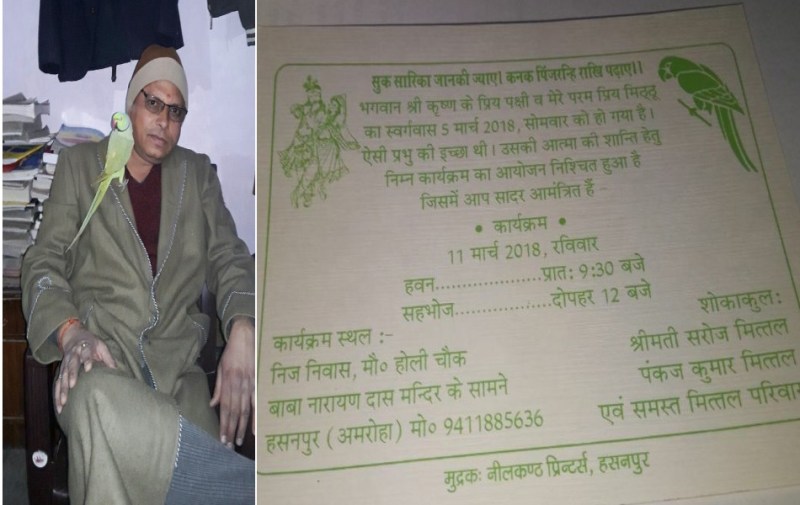 सुक सारिका जानकी ज्याए। कनक पिंजरन्हि राखि पढ़ाए।।
भगवान श्री कृष्ण के प्रिय पक्षी व मेरे परम प्रिय मिट्ठू
का स्वर्गवास 5 मार्च 2018, सोमवार को हो गया है।
ऐसी प्रभु की इच्छा थी। उसकी आत्मा की शान्ति हेतु
निम्न कार्यक्रम का आयोजन निश्चित हुआ है
जिसमें आप सादर आमंत्रित हैं -
• कार्यक्रम •
11 मार्च 2018, रविवार
हवन.....................प्रात: 9:30 बजे
सहभोज..................दोपहर 12 बजे
कार्यक्रम स्थल :-
निज निवास, मौ० होली चौक
बाबा नारायण दास मन्दिर के सामने
हसनपुर (अमरोहा) मो० 9411885636
शोकाकुल:
श्रीमती सरोज मित्तल
पंकज कुमार मित्तल
एवं समस्त मित्तल परिवार
मुद्रक: नीलकण्ठ प्रिन्टर्स, हसनपुर